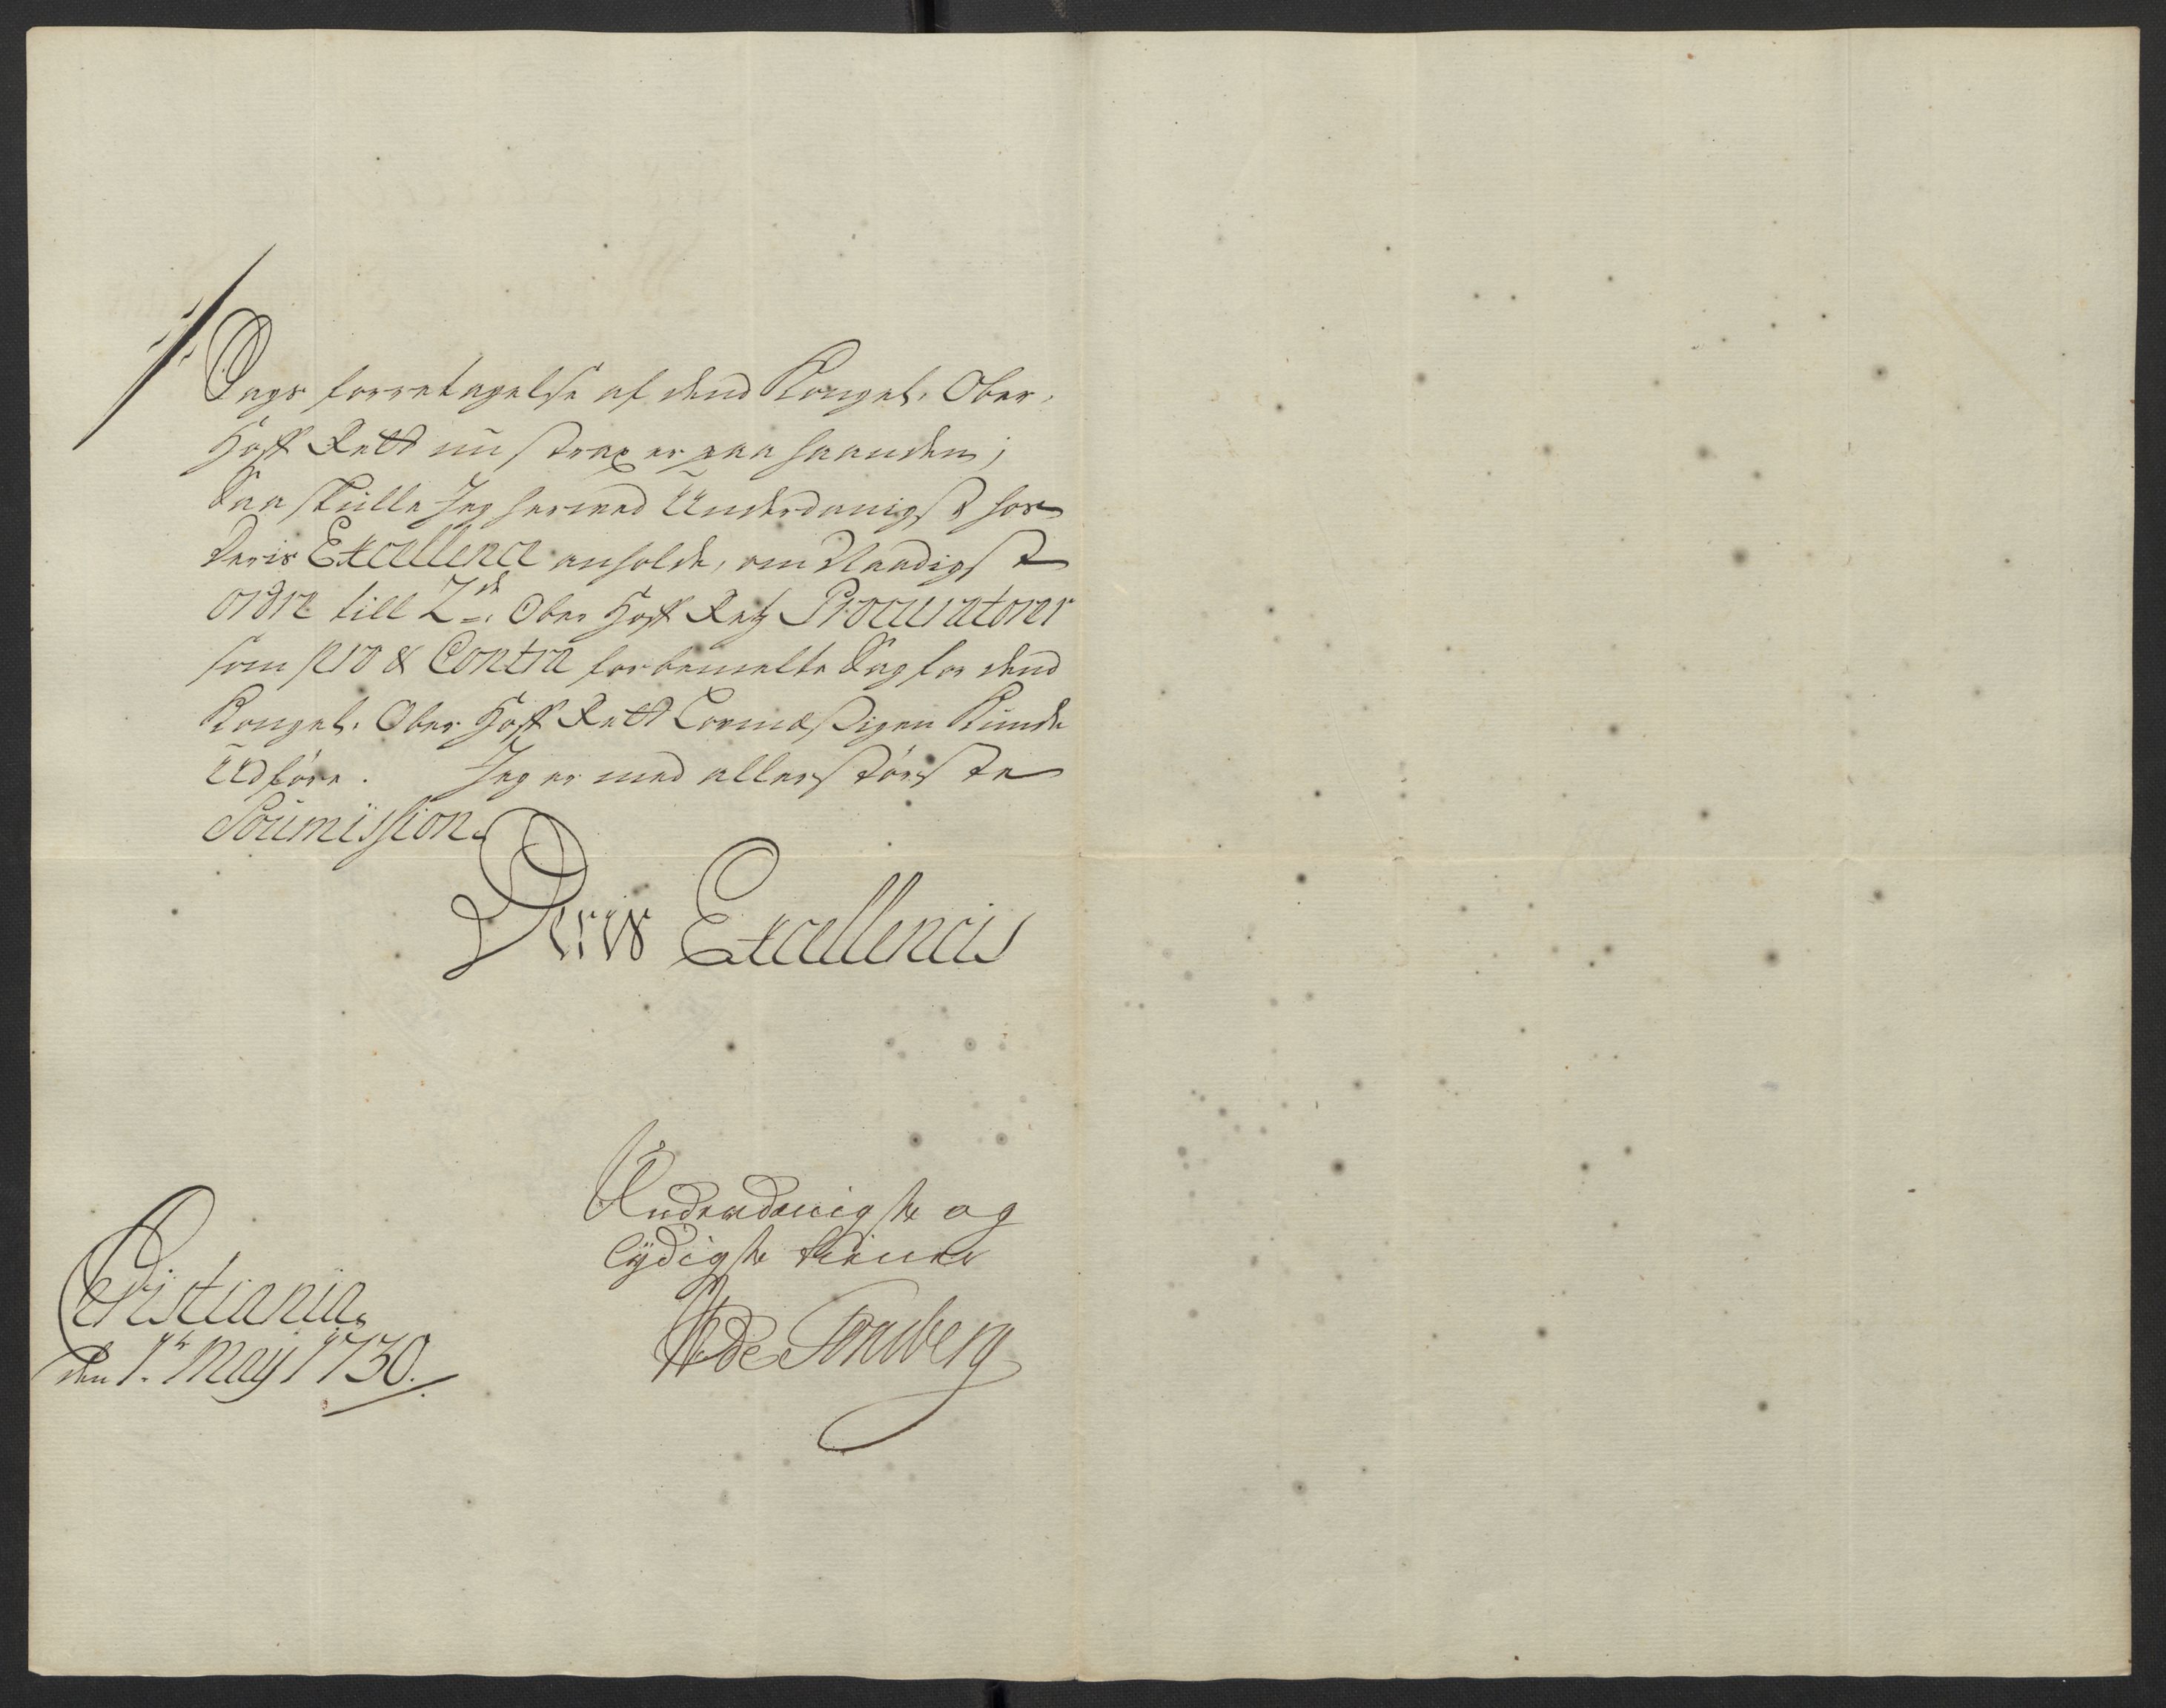 Sags forretagelse af dend Kongel. Ober,
Hoff Rett nu strax er paa haanden;
Saa skulle Jeg hermed Underdanigst hos
Deris Excellence anholde, om Naadigst
ordre till 2de Ober Hoff Retz Procuratorer
som pro & Contra forbemelte Sag for dend
Kongel. Ober Hoff Rett Lovmæssigen Kunde
Udføre. Jeg er med allerstørste
Soumission.
Deris Excellencis
Underdanigste og
lÿdigste tienner
de Tonsberg
Cristiania
den 1te Maÿ 1730.